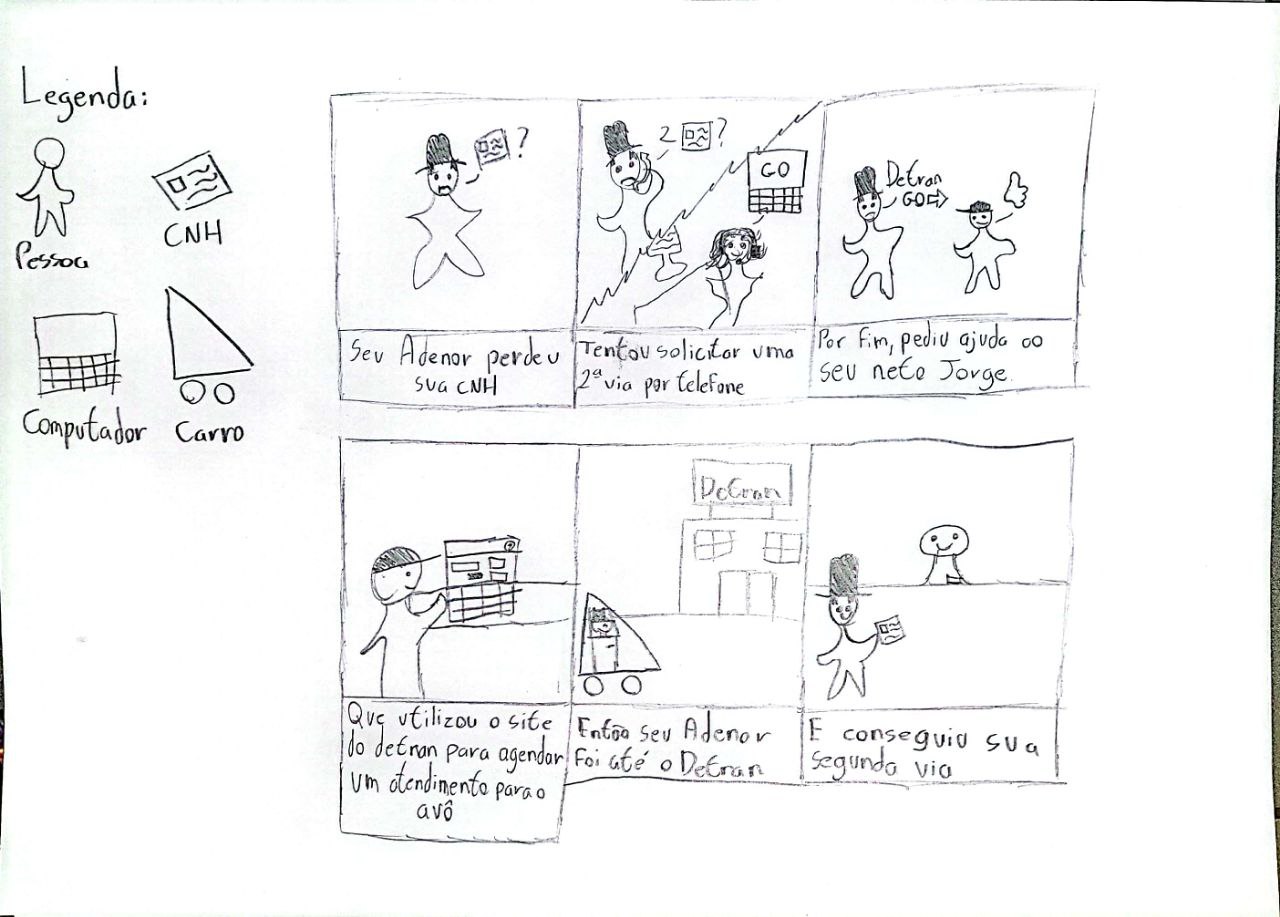 Legenda:
Pessoa
CNH
Computador
Carro
?
2 ?
GO
Detran
GO
Seu Adenor perdeu
sua CNH
Tentou solicitar uma
2ª via por telefone
Por fim, pediu ajuda ao
seu neto Jorge.
Detran
Que utilizou o site
do detran para agendar
um atendimento para o
avô
Então seu Adenor
Foi até o Detran
E conseguiu sua
segunda via